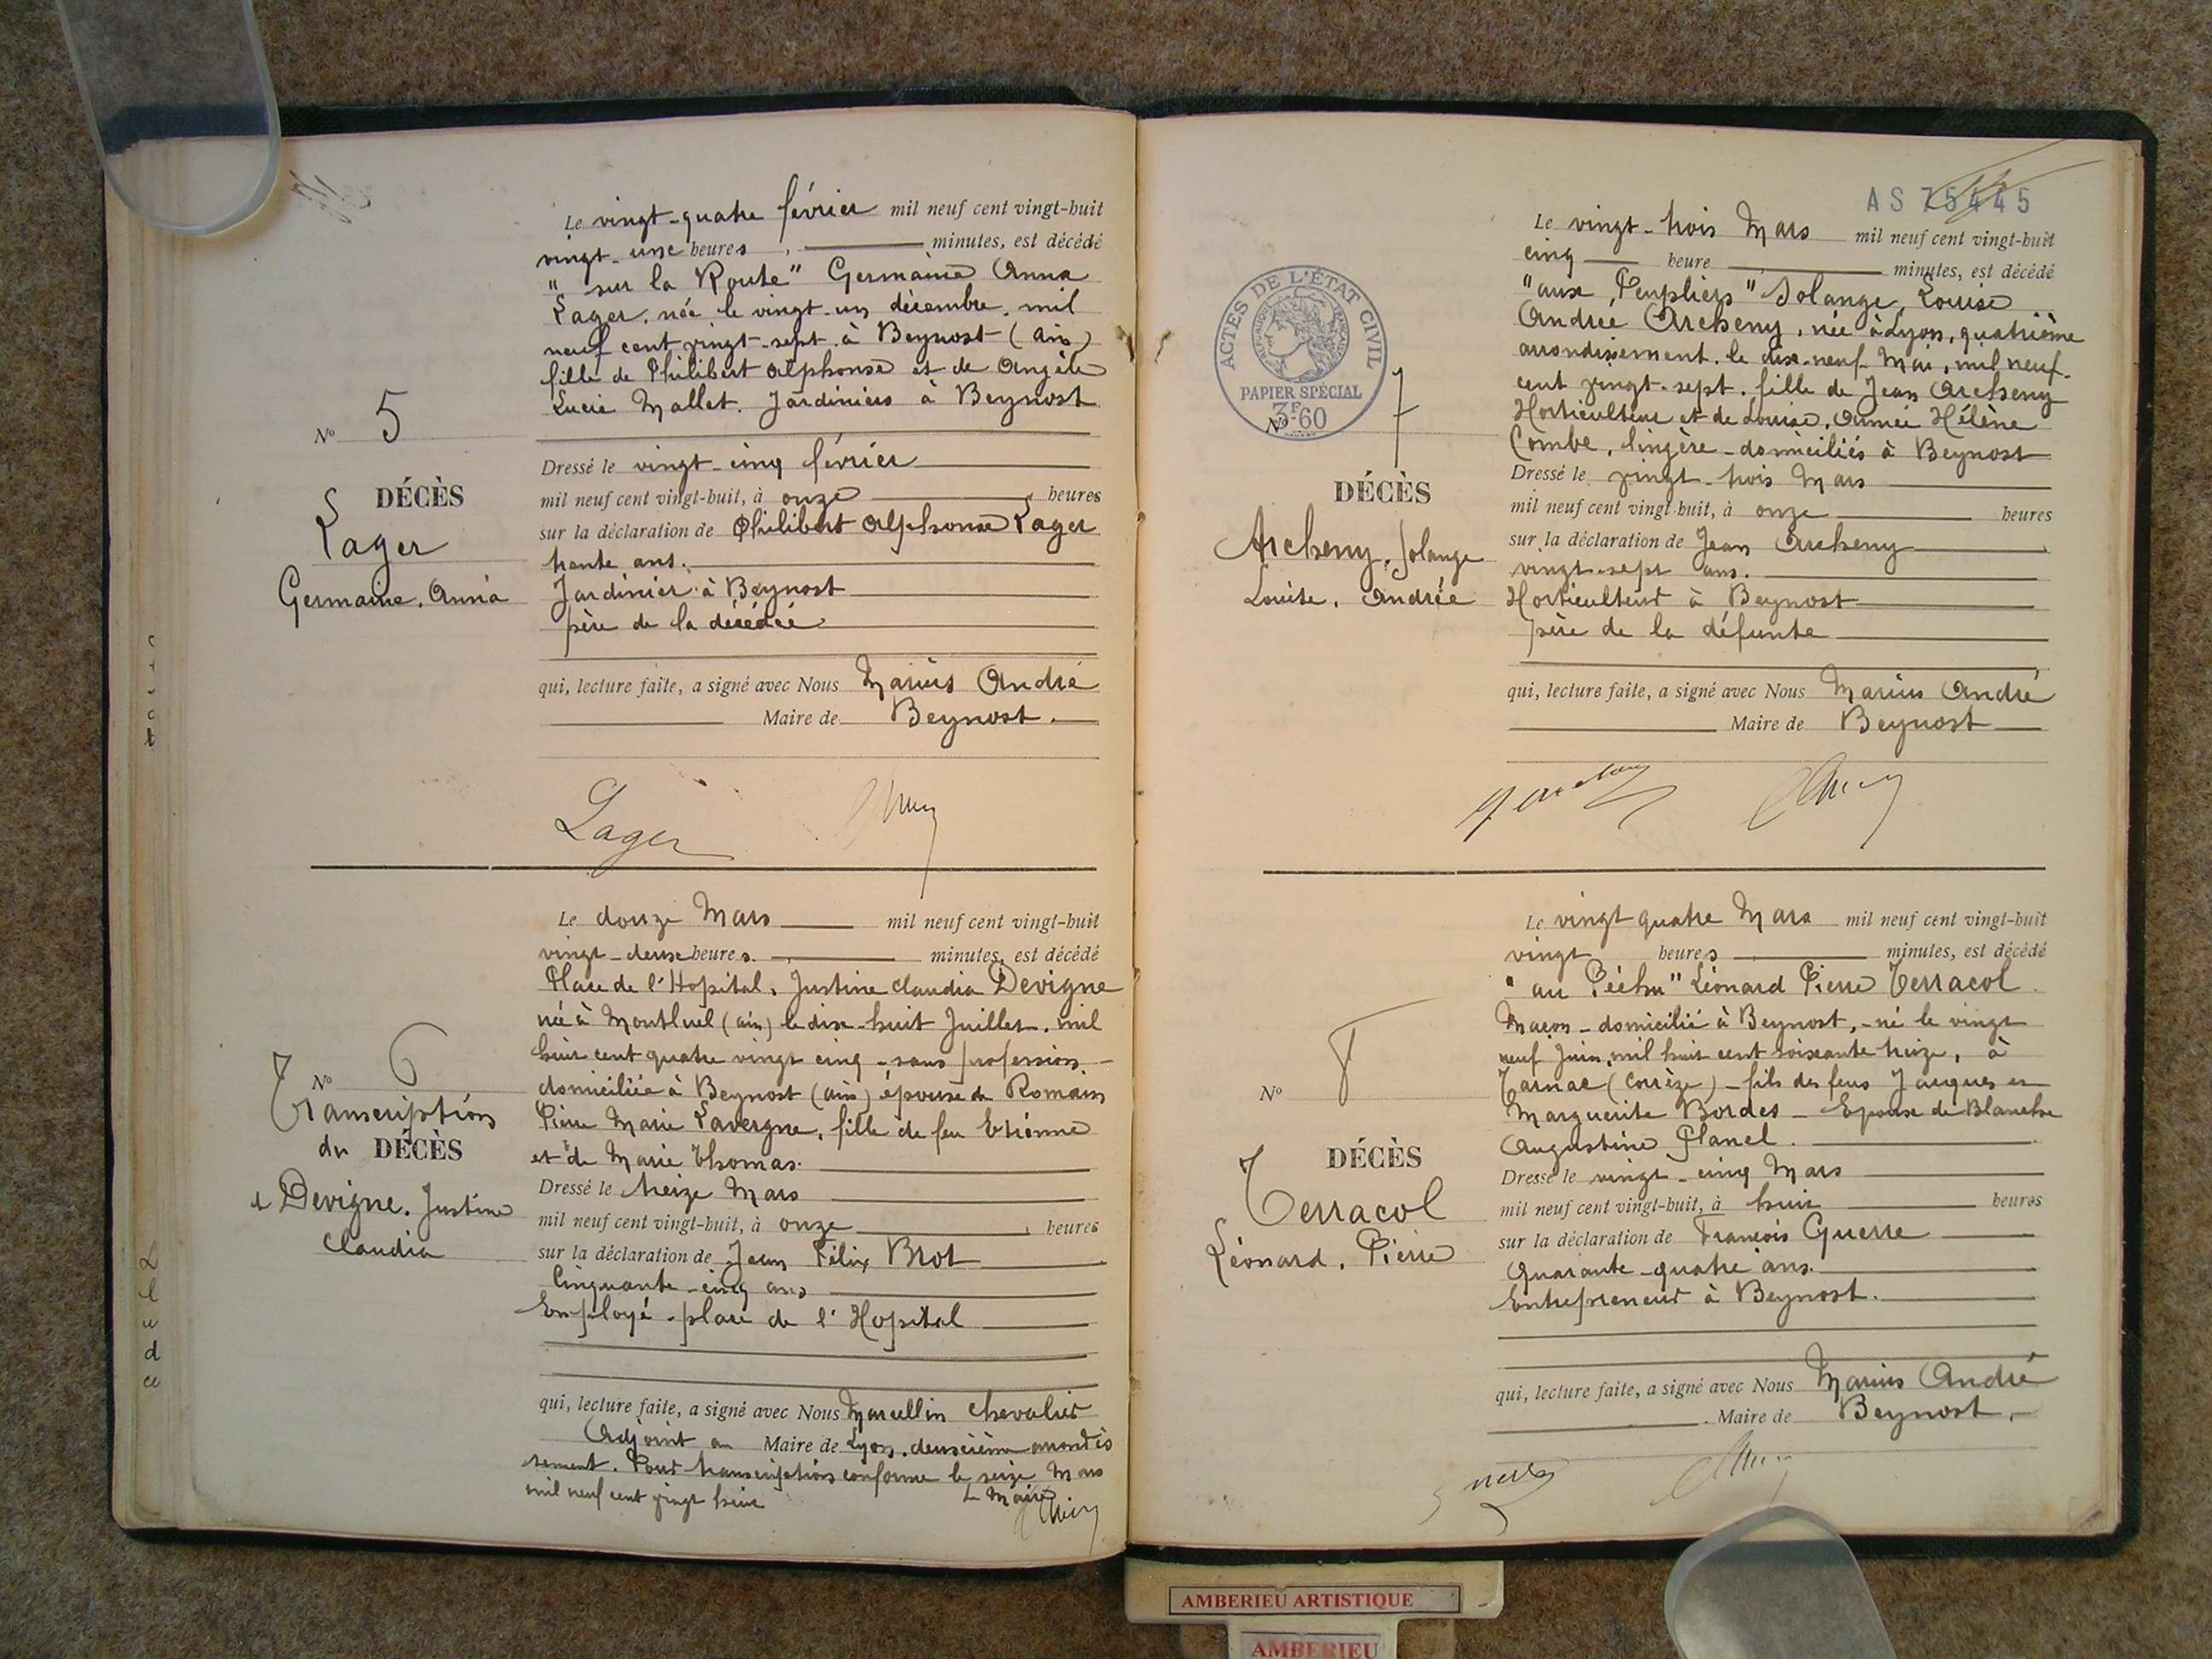 Le vingt-quatre février mil neuf cent vingt-huit
vingt-une heures, minutes, est décédé
" sur la Route" Germaine Anna
Lager, née le vingt-un décembre, mil
neuf cent vingt-sept à Beynost (Ain)
fille de Philibert Alphonse et de Angèle
Lucie Mallet. Jardiniers à Beynost
Nº 5
Dressé le vingt-cinq février
DÉCÈS
mil neuf cent vingt-huit, à onze heures
Lager
sur la déclaration de Philibert Alphonse Lager
trente ans.
Germaine, Anna
Jardinier à Beynost
père de la décédée
qui, lecture faite, a signé avec Nous Marius André
Maire de Beynost.
Lager
Le douze Mars mil neuf cent vingt-huit
vingt-deux heures, minutes, est décédé
Place de l'Hopital, Justine Claudia Devigne
née à Montluel (Ain) le dix-huit Juillet, mil
huit cent quatre vingt cinq - sans profession -
Nº 6
domiciliée à Beynost (Ain) épouse de Romain
Transcription
Pierre Marie Lavergne, fille de feu Etienne
du DÉCÈS
et de Marie Thomas.
Dressé le treize Mars
d Devigne. Justine
mil neuf cent vingt-huit, à onze heures
Claudia
sur la déclaration de Jean Félix Brot
Cinquante-cinq ans
Employé - place de l'Hopital
qui, lecture faite, a signé avec Nous Marcellin Chevalier
Adjoint au Maire de Lyon, deuxième arrondis
sement. Pour transcription conforme le seize Mars
mil neuf cent vingt huit Le Maire
AS 75445
Le vingt-trois Mars mil neuf cent vingt-huit
cinq heure minutes, est décédé
"aux Peupliers" Solange, Louise
Andrée Archeny, née à Lyon, quatrième
arrondissement, le dix-neuf Mai, mil neuf-
cent vingt-sept, fille de Jean Archeny
Horticulteur et de Louise, Aimée Hélène
Combe, lingère - domiciliés à Beynost
ACTES DE L'ÉTAT CIVIL
PAPIER SPÉCIAL
3F60
Nº 7
Dressé le vingt-trois Mars
DÉCÈS
mil neuf cent vingt-huit, à onze heures
Archeny, Solange
sur la déclaration de Jean Archeny
vingt-sept ans.
Louise, Andrée
Horticulteur à Beynost
père de la défunte
qui, lecture faite, a signé avec Nous Marius André
Maire de Beynost
Le vingt quatre Mars mil neuf cent vingt-huit
vingt heures minutes, est décédé
" au Péchu" Léonard Pierre Terracol
Maçon - domicilié à Beynost, - né le vingt
neuf Juin, mil huit cent soixante treize, à
Tarnac (Corrèze) - fils des feus Jacques et
Nº 8
Marguerite Bordes - Epoux de Blanche
Augustine Planel.
DÉCÈS
Dressé le vingt-cinq Mars
Terracol
mil neuf cent vingt-huit, à huit heures
Léonard, Pierre
sur la déclaration de François Guerre
Quarante-quatre ans.
Entrepreneur à Beynost.
qui, lecture faite, a signé avec Nous Marius André
Maire de Beynost,
AMBERIEU ARTISTIQUE
AMBERIEU